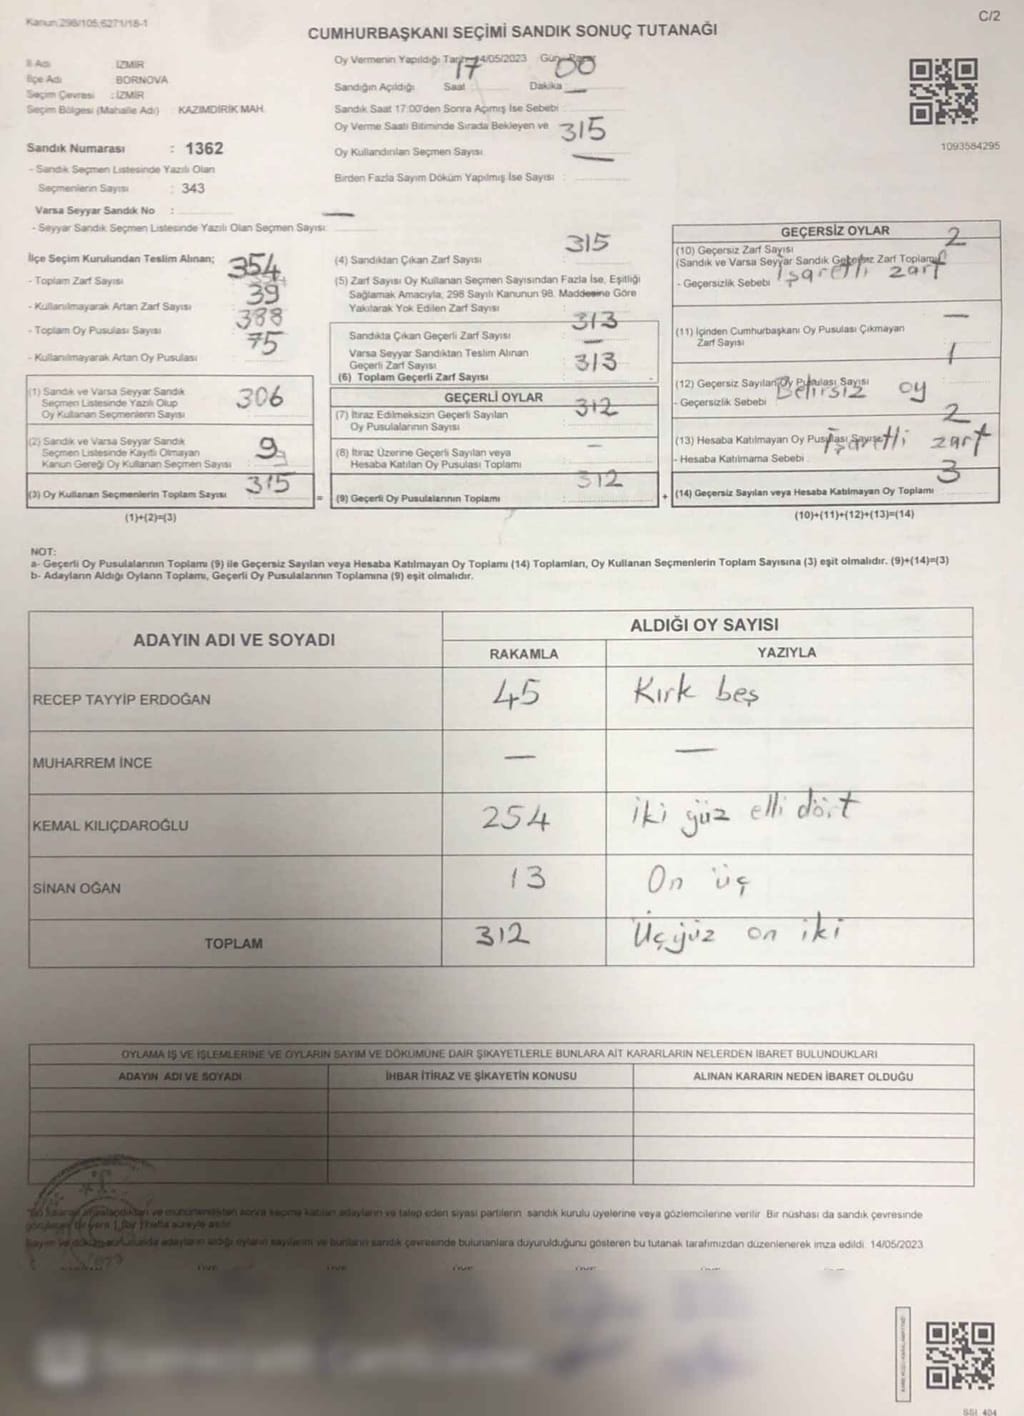 Kanun 298/105,6271/18-1
C/2
CUMHURBAŞKANI SEÇİMİ SANDIK SONUÇ TUTANAĞI
İl Adı : İZMİR
İlçe Adı : BORNOVA
Seçim Çevresi : İZMİR
Seçim Bölgesi (Mahalle Adı) : KAZIMDİRİK MAH.
Sandık Numarası : 1362
- Sandık Seçmen Listesinde Yazılı Olan
Seçmenlerin Sayısı : 343
Varsa Seyyar Sandık No :
- Seyyar Sandık Seçmen Listesinde Yazılı Olan Seçmen Sayısı: —
Oy Vermenin Yapıldığı Tarih 14/05/2023 Gün Pazar
Sandığın Açıldığı Saat 17 Dakika 00
Sandık Saat 17:00'den Sonra Açımış İse Sebebi
Oy Verme Saati Bitiminde Sırada Bekleyen ve
Oy Kullandırılan Seçmen Sayısı : 315
Birden Fazla Sayım Döküm Yapılmış İse Sayısı : —
1093584295
İlçe Seçim Kurulundan Teslim Alınan;
- Toplam Zarf Sayısı 354
- Kullanılmayarak Artan Zarf Sayısı 39
- Toplam Oy Pusulası Sayısı 388
- Kullanılmayarak Artan Oy Pusulası 75
(1) Sandık ve Varsa Seyyar Sandık
Seçmen Listesinde Yazılı Olup
Oy Kullanan Seçmenlerin Sayısı 306
(2) Sandık ve Varsa Seyyar Sandık
Seçmen Listesinde Kayıtlı Olmayan
Kanun Gereği Oy Kullanan Seçmen Sayısı 9
(3) Oy Kullanan Seçmenlerin Toplam Sayısı 315
(1)+(2)=(3)
=
(4) Sandıktan Çıkan Zarf Sayısı 315
(5) Zarf Sayısı Oy Kullanan Seçmen Sayısından Fazla İse, Eşitliği
Sağlamak Amacıyla, 298 Sayılı Kanunun 98. Maddesine Göre
Yakılarak Yok Edilen Zarf Sayısı :
Sandıkta Çıkan Geçerli Zarf Sayısı 313
Varsa Seyyar Sandıktan Teslim Alınan
Geçerli Zarf Sayısı —
(6) Toplam Geçerli Zarf Sayısı 313
GEÇERLİ OYLAR
(7) İtiraz Edilmeksizin Geçerli Sayılan
Oy Pusulalarının Sayısı 312
(8) İtiraz Üzerine Geçerli Sayılan veya
Hesaba Katılan Oy Pusulası Toplamı —
(9) Geçerli Oy Pusulalarının Toplamı 312
+
GEÇERSİZ OYLAR
(10) Geçersiz Zarf Sayısı
(Sandık ve Varsa Seyyar Sandık Geçersiz Zarf Toplamı) 2
- Geçersizlik Sebebi : işaretli zarf
(11) İçinden Cumhurbaşkanı Oy Pusulası Çıkmayan
Zarf Sayısı —
(12) Geçersiz Sayılan Oy Pusulası Sayısı 1
- Geçersizlik Sebebi : Belirsiz oy
(13) Hesaba Katılmayan Oy Pusulası Sayısı 2
- Hesaba Katılmama Sebebi : İşaretli zarf
(14) Geçersiz Sayılan veya Hesaba Katılmayan Oy Toplamı 3
(10)+(11)+(12)+(13)=(14)
NOT:
a- Geçerli Oy Pusulalarının Toplamı (9) ile Geçersiz Sayılan veya Hesaba Katılmayan Oy Toplamı (14) Toplamları, Oy Kullanan Seçmenlerin Toplam Sayısına (3) eşit olmalıdır. (9)+(14)=(3)
b- Adayların Aldığı Oyların Toplamı, Geçerli Oy Pusulalarının Toplamına (9) eşit olmalıdır.
ADAYIN ADI VE SOYADI
ALDIĞI OY SAYISI
RAKAMLA YAZIYLA
RECEP TAYYİP ERDOĞAN 45 Kırk beş
MUHARREM İNCE — —
KEMAL KILIÇDAROĞLU 254 iki yüz elli dört
SİNAN OĞAN 13 On üç
TOPLAM 312 Üçyüz on iki
OYLAMA İŞ VE İŞLEMLERİNE VE OYLARIN SAYIM VE DÖKÜMÜNE DAİR ŞİKAYETLERLE BUNLARA AİT KARARLARIN NELERDEN İBARET BULUNDUKLARI
ADAYIN ADI VE SOYADI İHBAR İTİRAZ VE ŞİKAYETİN KONUSU ALINAN KARARIN NEDEN İBARET OLDUĞU
sonra seçime katılan adayların ve talep eden siyasi partilerin sandık kurulu üyelerine veya gözlemcilerine verilir. Bir nüshası da sandık çevresinde
1 (bir) hafta süreyle asılır.
Sayım ve döküm sonucunda adayların aldığı oyların sayılarını ve bunların sandık çevresinde bulunanlara duyurulduğunu gösteren bu tutanak tarafımızdan düzenlenerek imza edildi. 14/05/2023
SSI 404